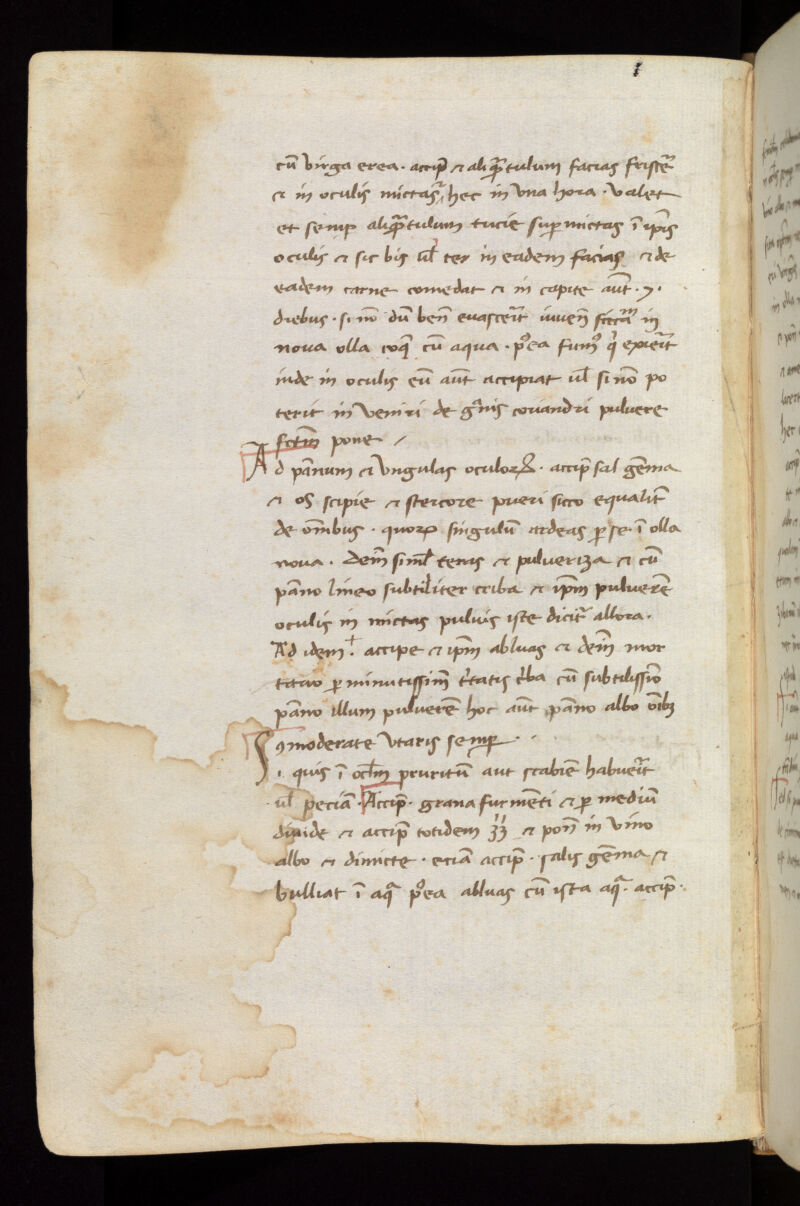 cū virga erea · accip̄ & aliq̄ntulum facias friscēr
& in oculis mictas, hec in vna hora · valet
et semp aliq̄ntulum tucie supmictas ī ip̄is
oculis & sic bis ul̄ ter in eadem facias & de
eadem carne comedat & in capite aūt · 7 ·
diebus · si nō dū ben̄ euaserit in
nova olla coq̄ cū aqua · p̄ea fum̄ q̄ exierit
inde in oculis eū aūt accipiat ul̄ si nō po
terit in veniri de gr̄nis coriandri pulvere
fctm̄ pone
Ad pānum & vngulas oculoꝝ · accip̄ sal gēma
& os scipie & stercore pueri sicco equalit̄
de om̄ibus · quorꝰ singulū ardeas p se ī olla
nova · dem̄ siml̄ teras & pulveriza & cū
pāno lineo subtiliter criba & ip̄m pulverē
oculis in mictas pulvis iste dicit̄ allora ·
Ad idem · accipe & ip̄m abluas & dem̄ mor
tario p minutissim̄ t̄ratis c̄ba cū subtilissīo
pāno illum pulverē hoc aūt pāno albo om̄ibꝫ
ꝯmoderate vtaris semp ·
Si quis ī ocl̄m pruritū aut scabiē habuer̄it
ul̄ peciā · Accip̄ · grana furmēti & p mediū
divide & accip̄ totidem ʒʒ & pon̄ in vino
albo & dimicte · eciā accip̄ · salis gēma &
bulliat ī aq̄ p̄ea abluas cū ista aq̄ · accip̄ ·